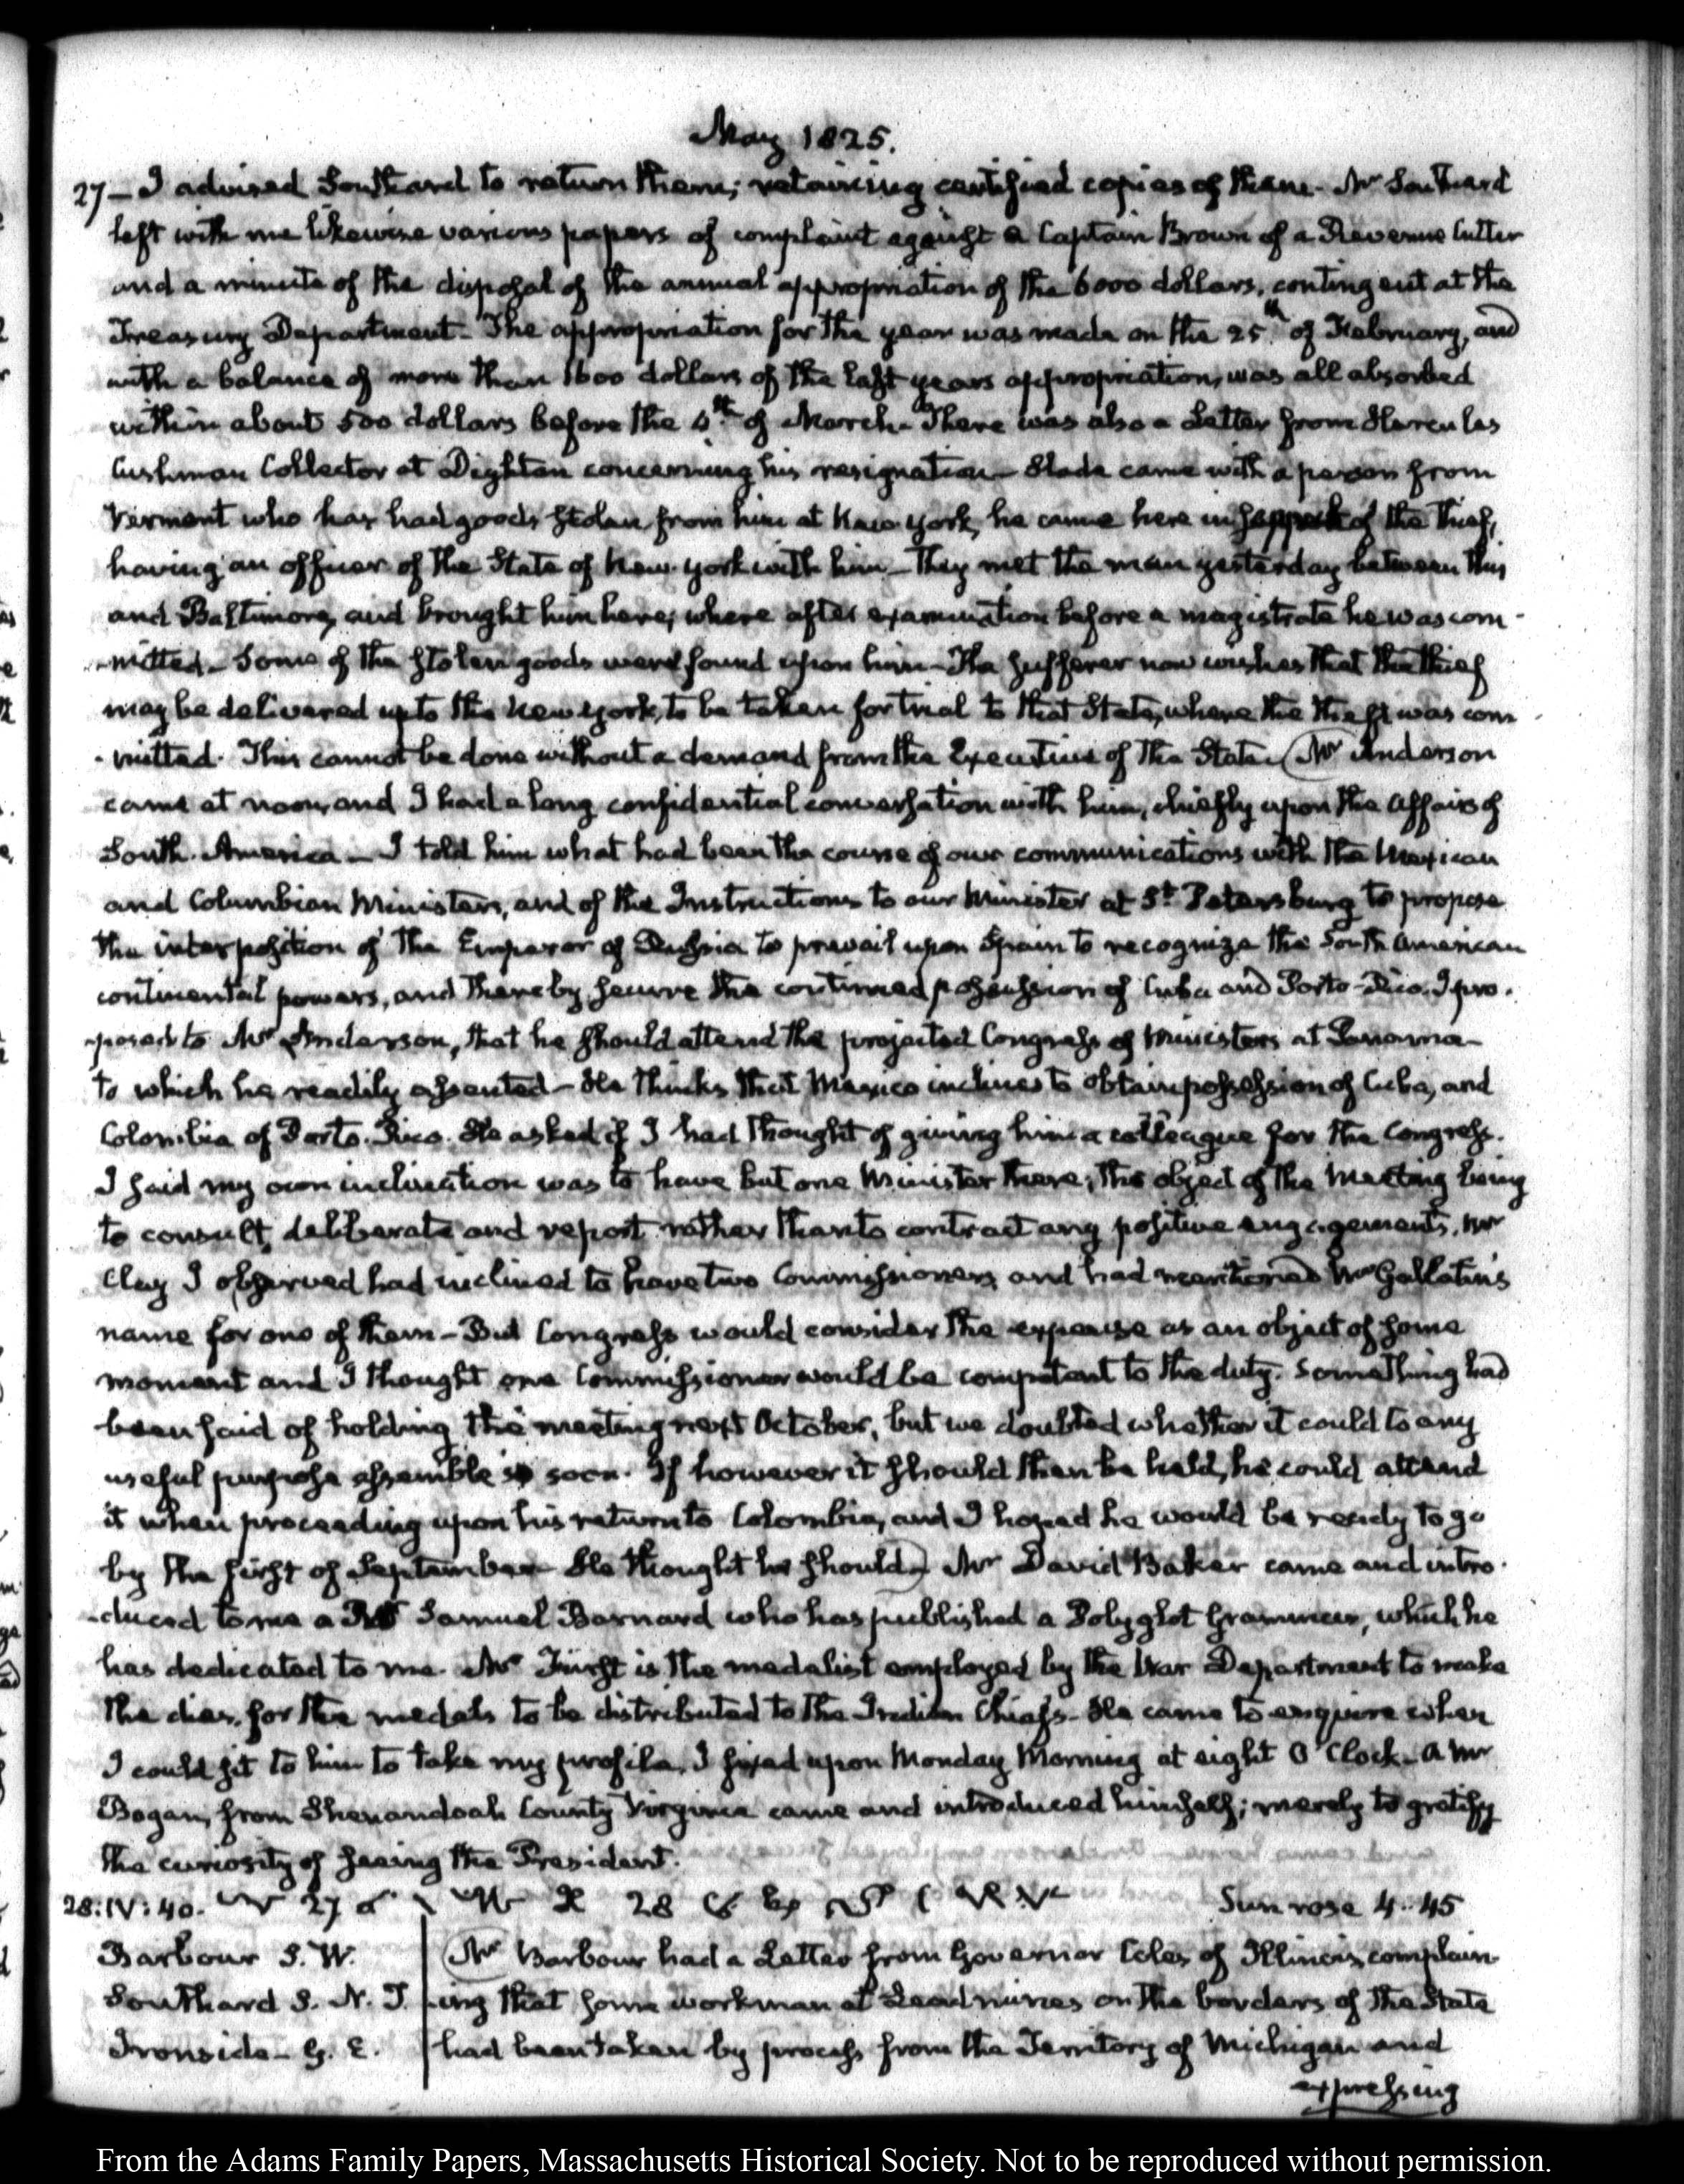 May 1825.
27 — I advised Southard to return them; retaining certified copies of them. Mr Southard
left with me likewise various papers of complaint against a Captain Brown of a Revenue Cutter
and a minute of the disposal of the annual appropriation of the 6000 dollars, contingent at the
Treasury Department. The appropriation for the year was made on the 25th. of February, and
with a balance of more than 1600 dollars of the last years appropriation, was all absorbed
within about 500 dollars before the 4th. of March. There was also a Letter from Hercules
Cushman Collector at Dighton concerning his resignation — Slade came with a person from
Vermont who has had goods stolen from him at New York, he came here in of the Thief,
having an officer of the State of New-York with him — They met the man yesterday between this
and Baltimore, and brought him here; where after examination before a magistrate he was com-
-mitted — Some of the stolen goods were found upon him — The sufferer now wishes that the thief
may be delivered up to the New York, to be taken for trial to that State, where the theft was com-
-mitted. This cannot be done without a demand from the Executive of the State. (Mr Anderson
came at noon, and I had a long confidential conversation with him, chiefly upon the affairs of
South-America — I told him what had been the course of our communications with the Mexican
and Columbian Ministers, and of the Instructions to our Minister at St. Petersburg to propose
the interposition of the Emperor of Russia to prevail upon Spain to recognize the South American
continental powers, and thereby secure the continued possession of Cuba and Porto-Rico. I pro-
-posed to Mr Anderson, that he should attend the projected Congress of Ministers at Panama —
to which he readily assented — He thinks that Mexico inclines to obtain possession of Cuba, and
Colombia of Porto-Rico. He asked if I had thought of giving him a colleague for the Congress.
I said my own inclination was to have but one Minister there; the object of the Meeting being
to consult, deliberate and report rather than to contract any positive engagements. Mr
Clay I observed had inclined to have two Commissioners and had mentioned Mr Gallatin's
name for one of them — But Congress would consider the expense as an object of some
moment and I thought one Commissioner would be competent to the duty. Something had
been said of holding the meeting next October, but we doubted whether it could to any
useful purpose assemble so soon. If however it should then be held, he could attend
it when proceeding upon his return to Colombia, and I hoped he would be ready to go
by the first of September. He thought he should) Mr David Baker came and intro-
-duced to me a Samuel Barnard who has published a Polyglot Grammar, which he
has dedicated to me. Mr Fürst is the medalist employed by the War Department to make
the dies for the medals to be distributed to the Indian Chiefs. He came to enquire when
I could sit to him to take my profile. I fixed upon Monday Morning at eight O'Clock — A Mr
Bogan, from Shenandoah County Virginia came and introduced himself; merely to gratify
the curiosity of seeing the President.
28: IV: 40. 27 28 Sun rose 4..45
Barbour S. W. (Mr Barbour had a Letter from Governor Coles of Illinois, complain-
Southard S. N. T. -ing that some workmen at Lead mines on the borders of the State
Ironside — G. E. had been taken by process from the Territory of Michigan and
expressing
From the Adams Family Papers, Massachusetts Historical Society. Not to be reproduced without permission.